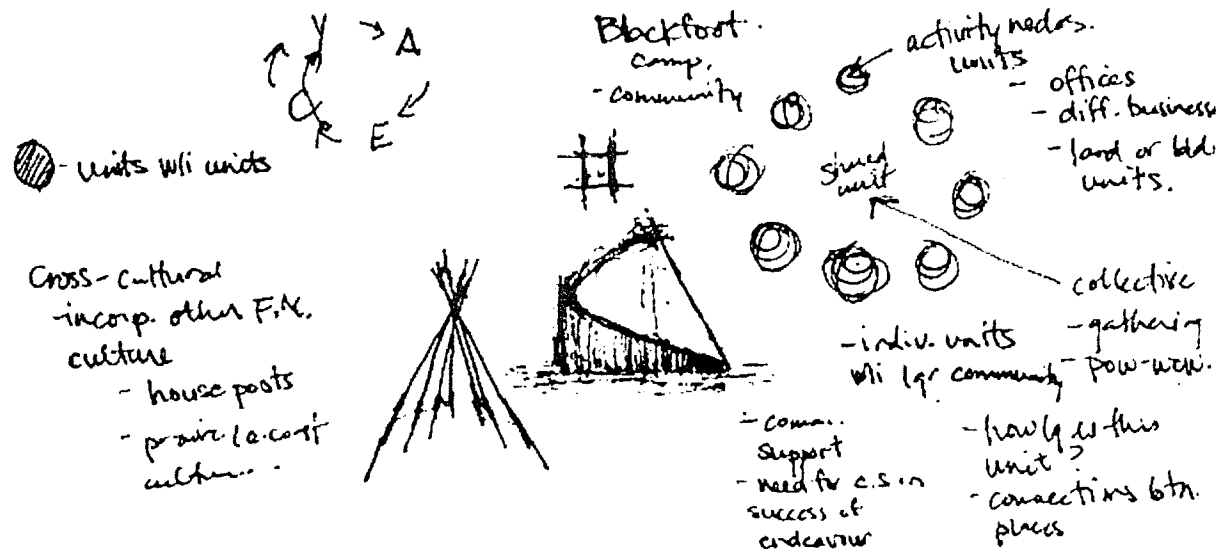 Y A
R E
- units w/i units
Cross-cultural
- incorp. other F.N.
culture
- house posts
Blackfoot
camp.
- community
activity nodes.
units
- offices
- diff. business
- land or bld.
units.
shared
unit
collective
- gathering
- pow-wow.
- indiv. units
w/i lgr community
- comm.
support
- need for c.s. in
success of
endeavour
- how lg is this
unit?
- connections btn.
places